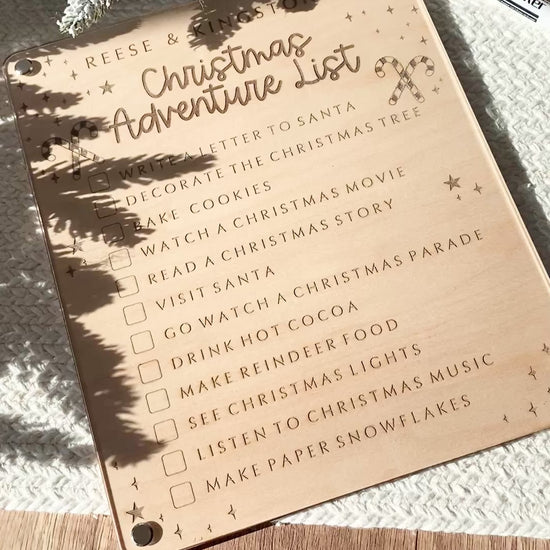 REESE & KINGSTON
Christmas
Adventure List
WRITE A LETTER TO SANTA
DECORATE THE CHRISTMAS TREE
BAKE COOKIES
WATCH A CHRISTMAS MOVIE
READ A CHRISTMAS STORY
VISIT SANTA
GO WATCH A CHRISTMAS PARADE
DRINK HOT COCOA
MAKE REINDEER FOOD
SEE CHRISTMAS LIGHTS
LISTEN TO CHRISTMAS MUSIC
MAKE PAPER SNOWFLAKES